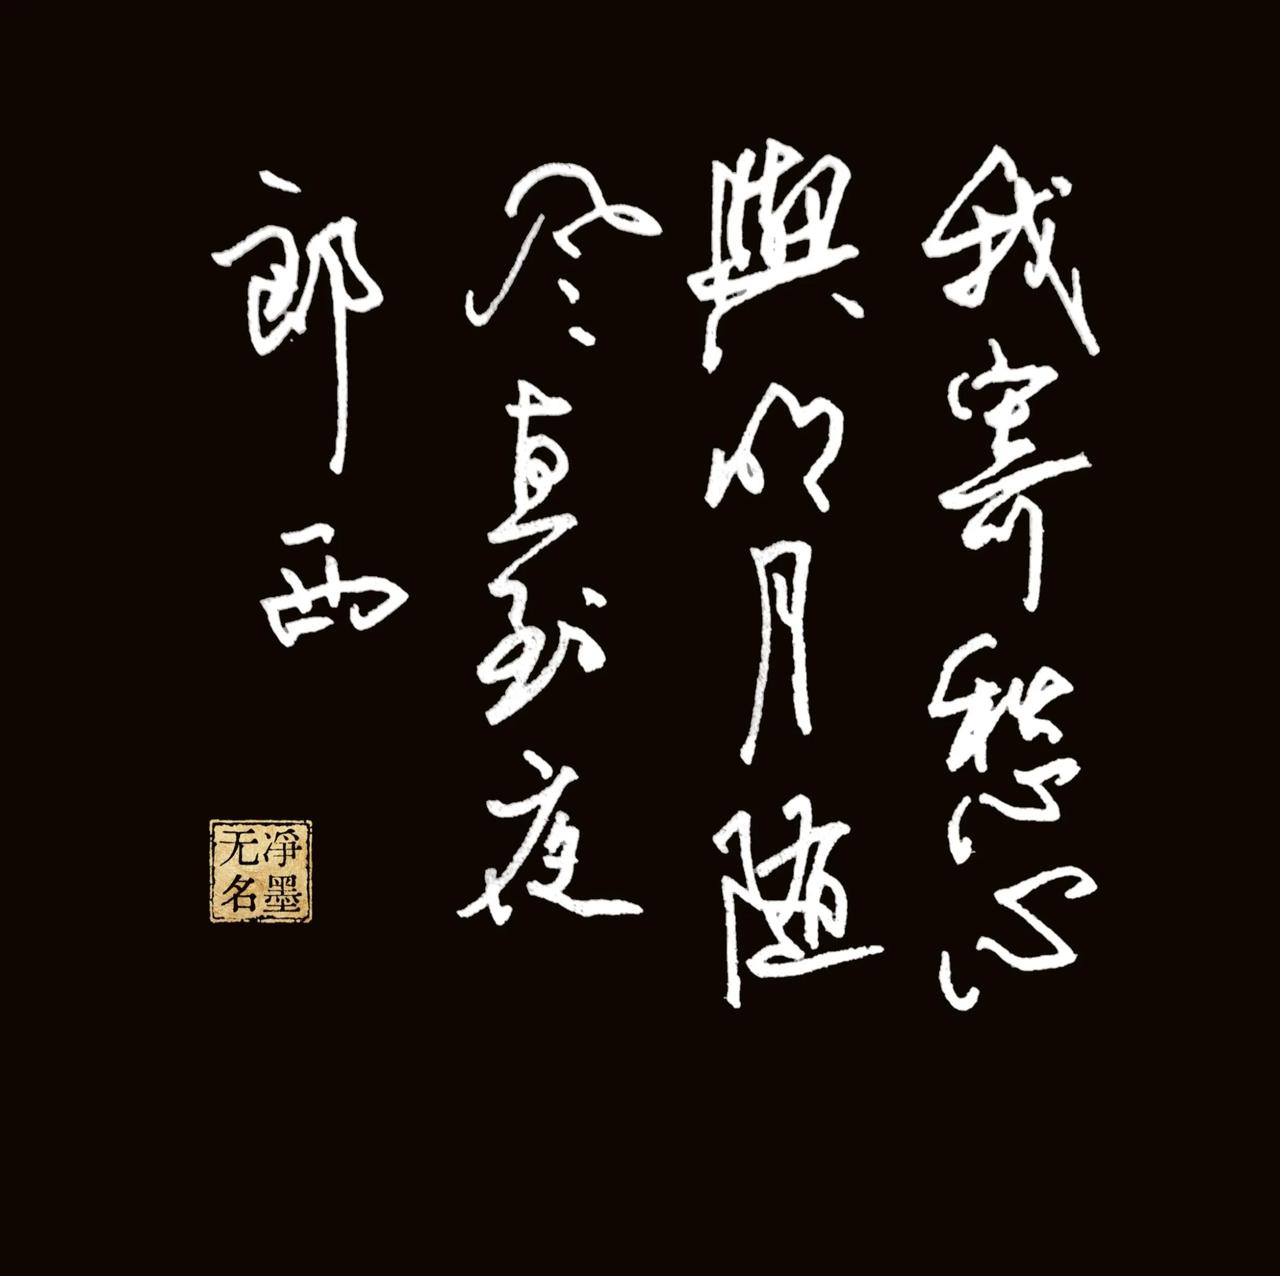 我寄愁心
與明月随
风直到夜
郎西
凈墨
无名